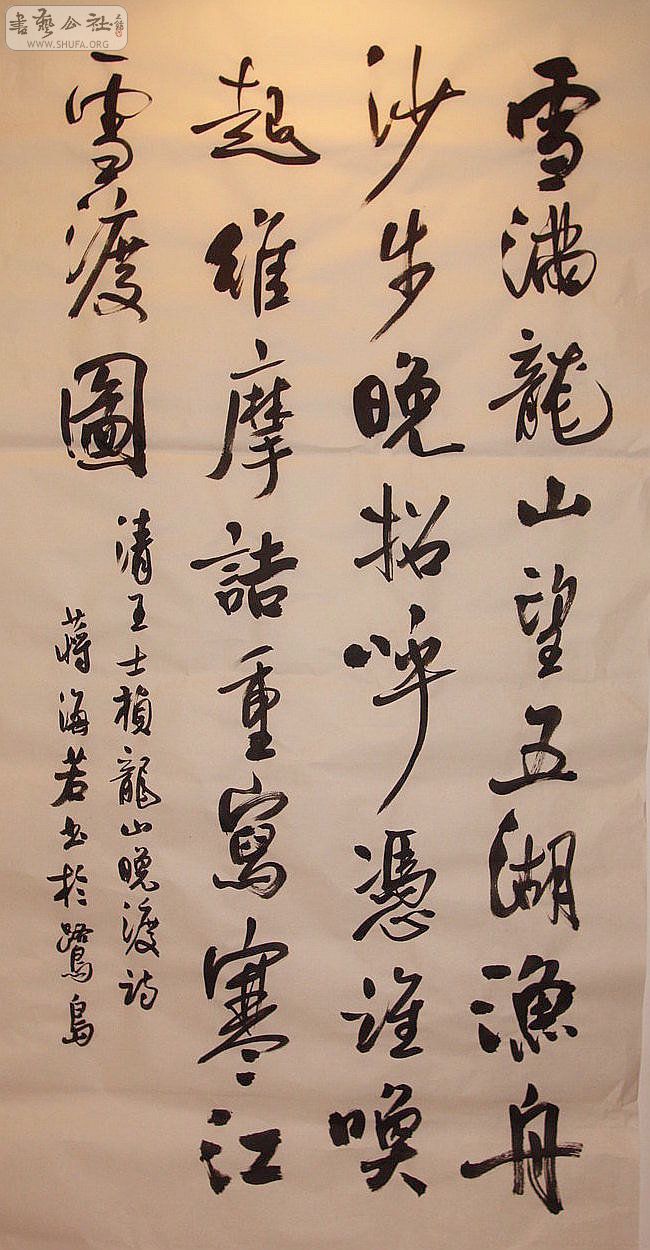 雪滿龍山望五湖漁舟
沙步晚招呼憑誰喚
起維摩詰重寫寒江
雪渡圖
清王士楨龍山晚渡詩
蔣海若書於鷺島
書藝公社
WWW.SHUFA.ORG